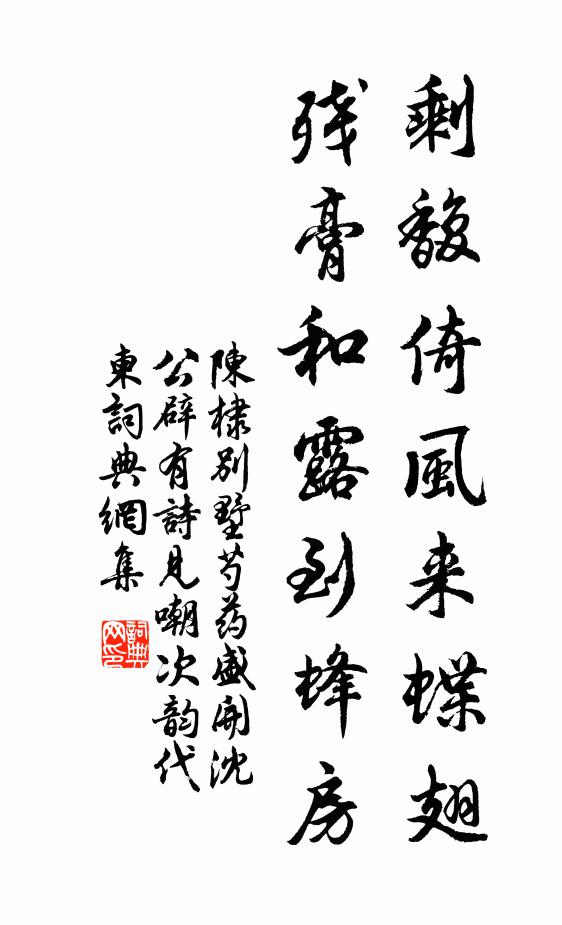 剩馥倚風来蝶翅
残膏和露到蜂房
陳棣別墅芍药盛開沈
公辟有詩見嘲次韵代
東詞典網集
詞典网印